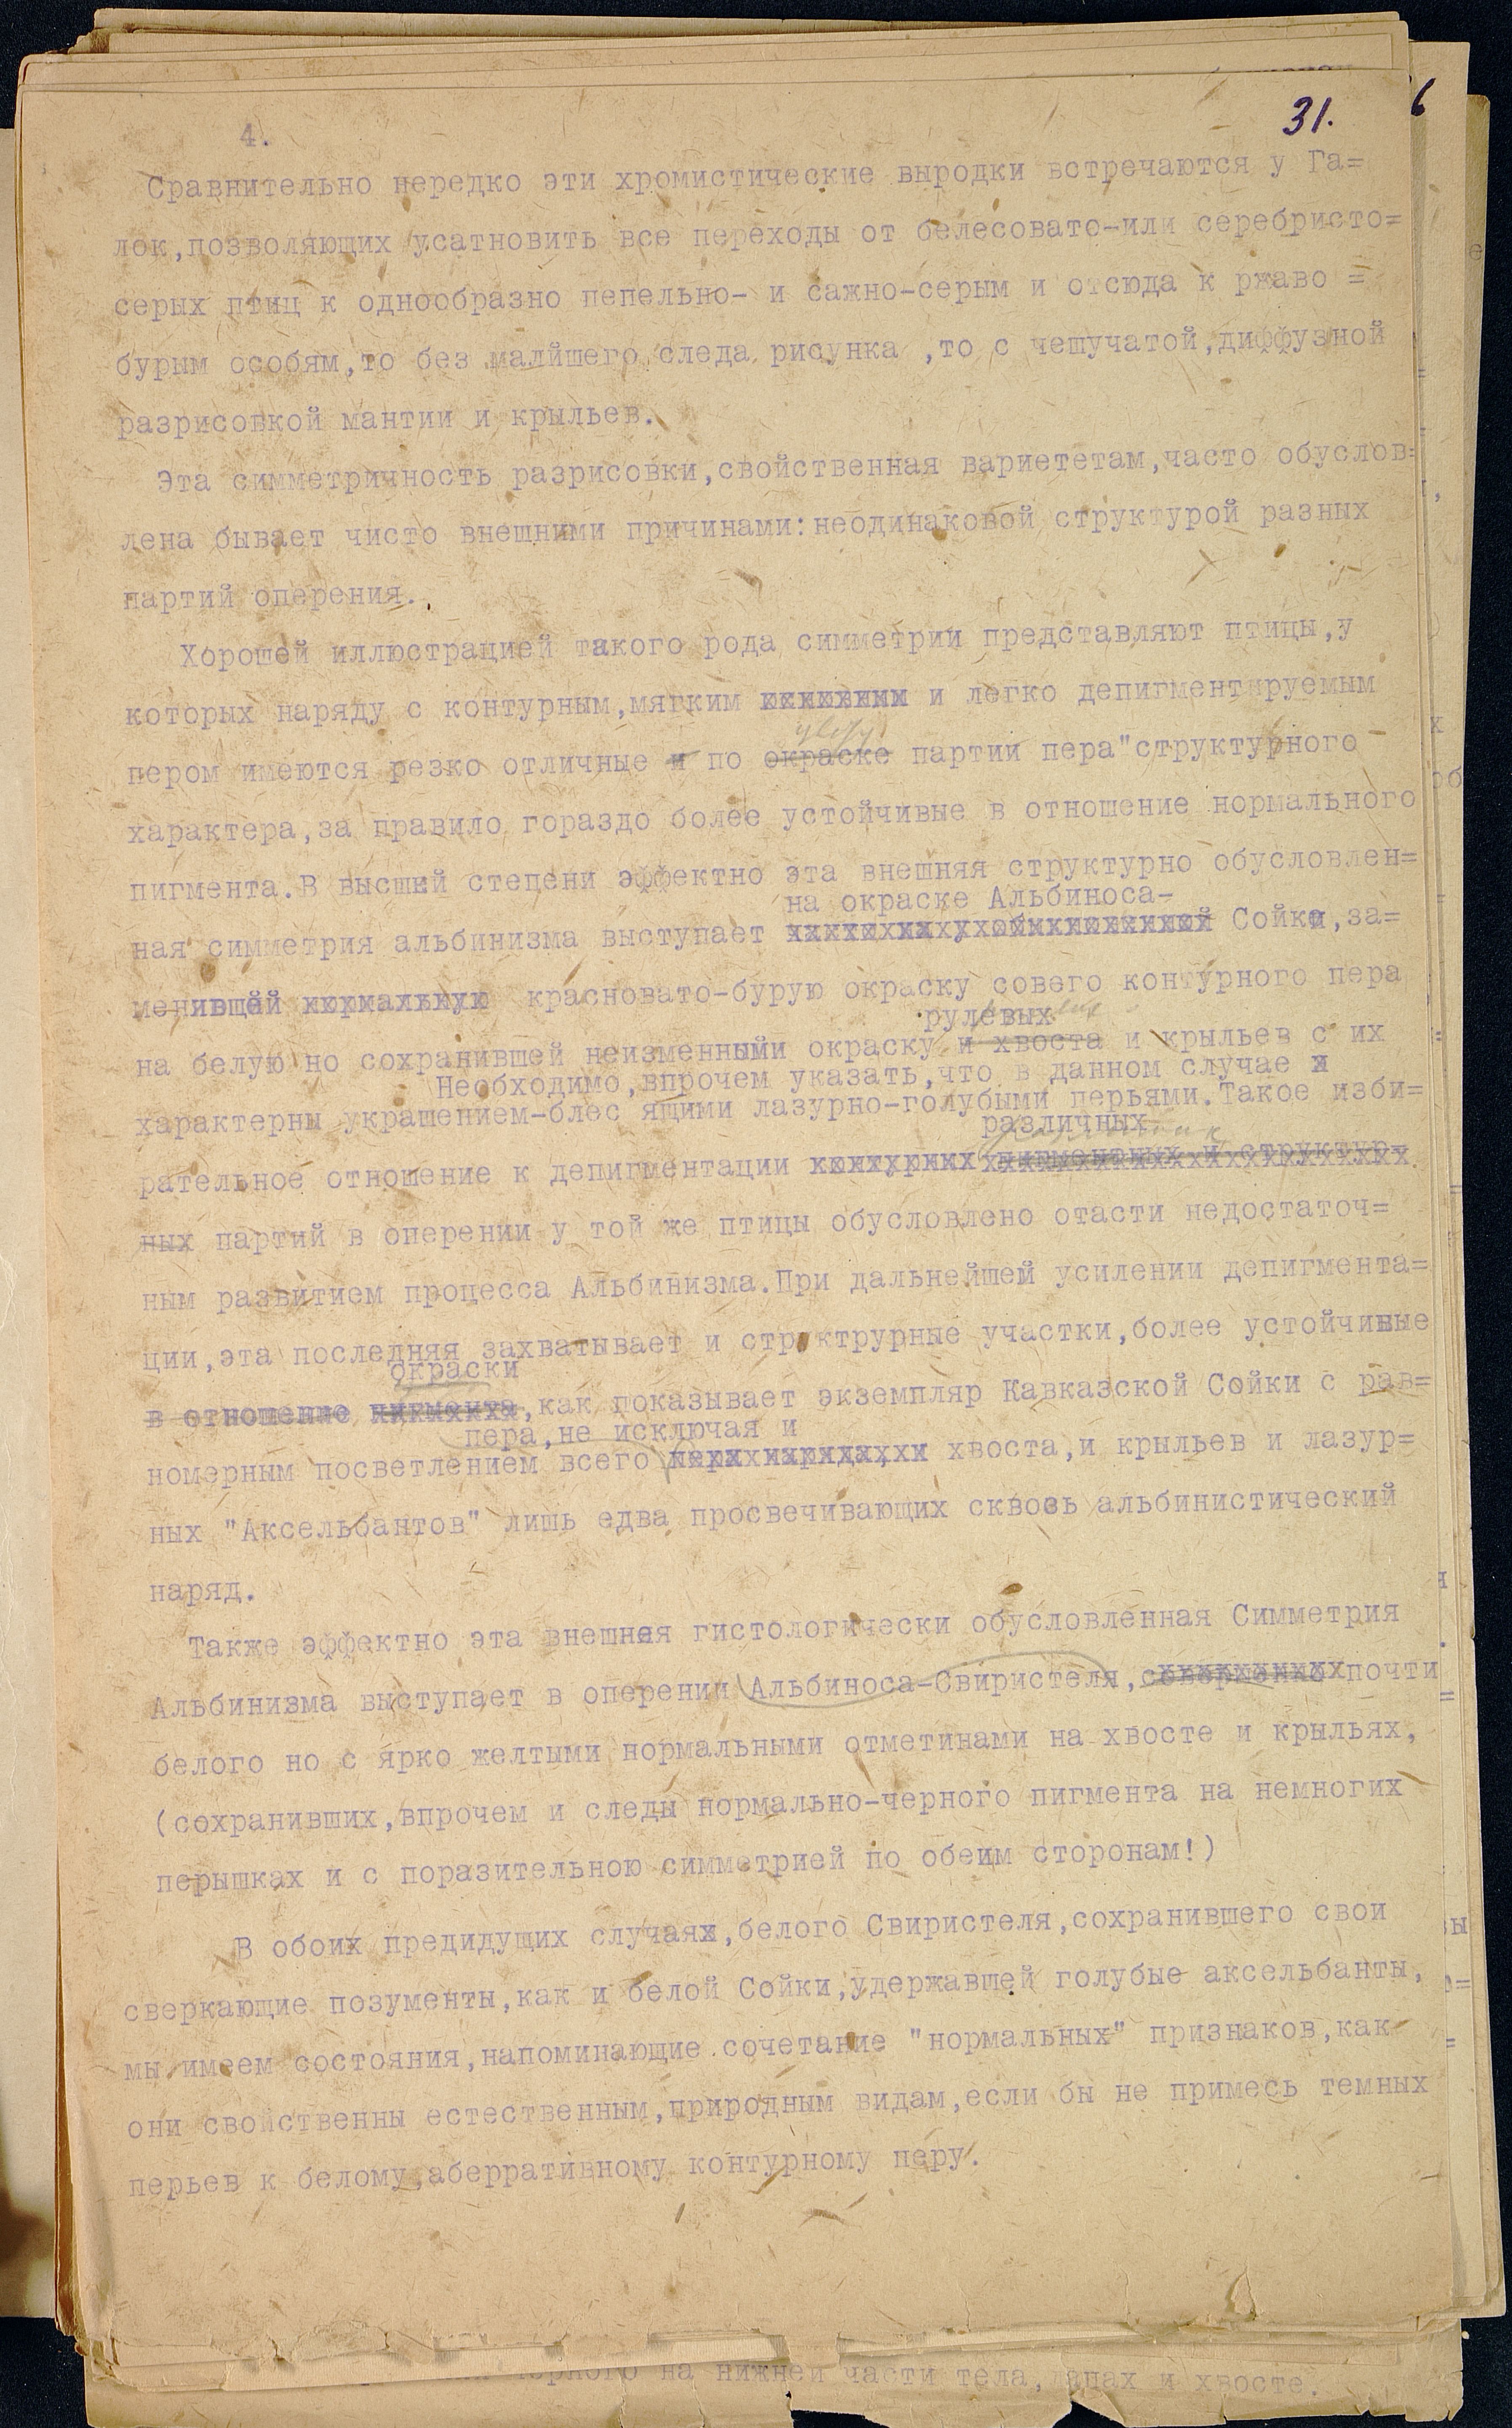 31.
6
4.
Сравнительно нередко эти хромистические выродки встречаются у Га=
лок,позволяющих усатновить все переходы от белесовато-или серебристо=
серых птиц к однообразно пепельно- и сажно-серым и отсюда к ржаво =
бурым особям,то без малйшего следа рисунка ,то с чешучатой,диффузной
разрисовкой мантии и крыльев.
Эта симметричность разрисовки,свойственная вариететам,часто обуслов=
лена бывает чисто внешними причинами:неодинаковой структурой разных
партий оперения.
Хорошей иллюстрацией такого рода симметрии представляют птицы,у
которых наряду с контурным,мягким и легко депигментируемым
цвету
пером имеются резко отличные и по окраске партии пера"структурного
характера,за правило гораздо более устойчивые в отношение нормального
пигмента.В высшей степени эффектно эта внешняя структурно обусловлен=
на окраске Альбиноса-
ная симметрия альбинизма выступает Сойки,за=
менившей нормальную красновато-бурую окраску совего контурного пера
рулевых
на белую но сохранившей неизменныйи окраску и хвоста и крыльев с их
Необходимо,впрочем указать,что в данном случае и
характерны украшением-блес ящими лазурно-голубыми перьями.Такое изби=
различных
рательное отношение к депигментации контурных пигментных и структур=
ных партий в оперении у той же птицы обусловлено отасти недостаточ=
ным развитием процесса Альбинизма.При дальнейшей усилении депигмента=
ции,эта последняя захватывает и структрурные участки,более устойчивые
окраски
в отношение пигмента,как показывает экземпляр Кавказской Сойки с рав=
пера,не исключая и
номерным посветлением всего хвоста,и крыльев и лазур=
ных "Аксельбантов" лишь едва просвечивающих сквозь альбинистический
наряд.
Также эффектно эта внешняя гистологически обусловленная Симметрия
Альбинизма выступает в оперении Альбиноса-Свиристеля,совершенно почти
белого но с ярко желтыми нормальными отметинами на хвосте и крыльях,
(сохранивших,впрочем и следы нормально-черного пигмента на немногих
перышках и с поразительною симметрией по обеим сторонам!)
В обоих предидущих случаях,белого Свиристеля,сохранившего свои
сверкающие позументы,как и белой Сойки,удержавшей голубые аксельбанты,
мы имеем состояния,напоминающие сочетание "нормальных" признаков,как
они свойственны естественным,природным видам,если бы не примесь темных
перьев к белому,аберративному контурному перу.
черного на нижней части тела, лапах и хвосте.